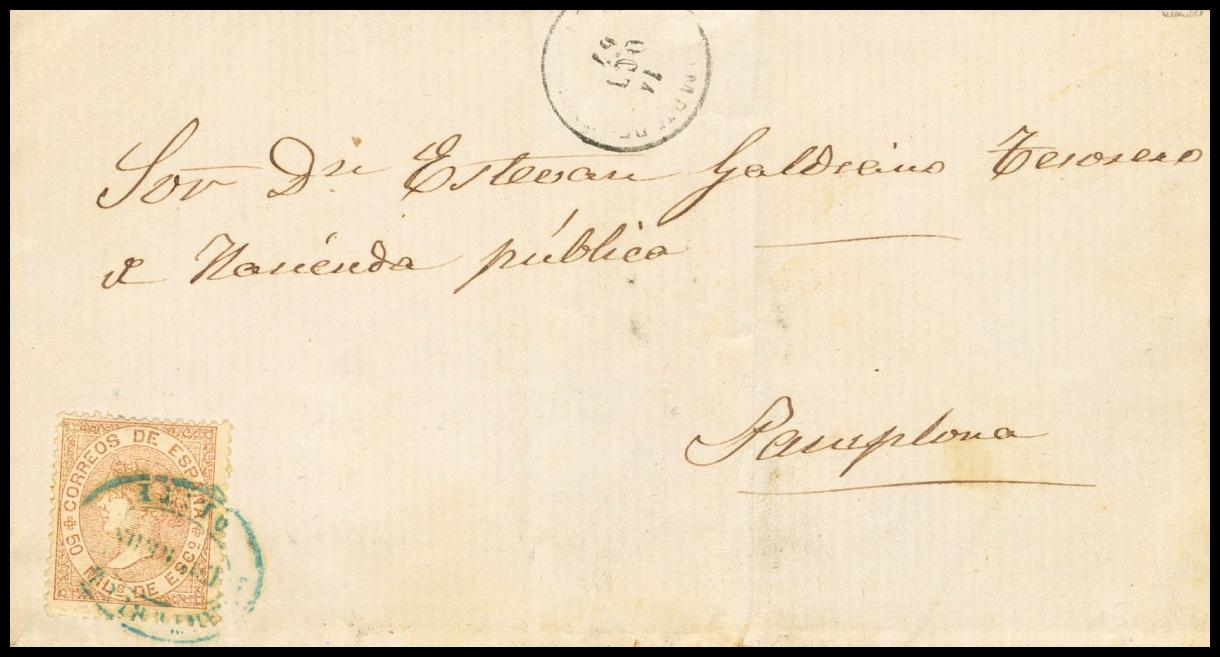 14
OCT
67
Sor Dn Estevan Galdeano Tesorero
de Hacienda pública
Pamplona
CORREOS DE ESPAÑA
50 MILs DE ESCo